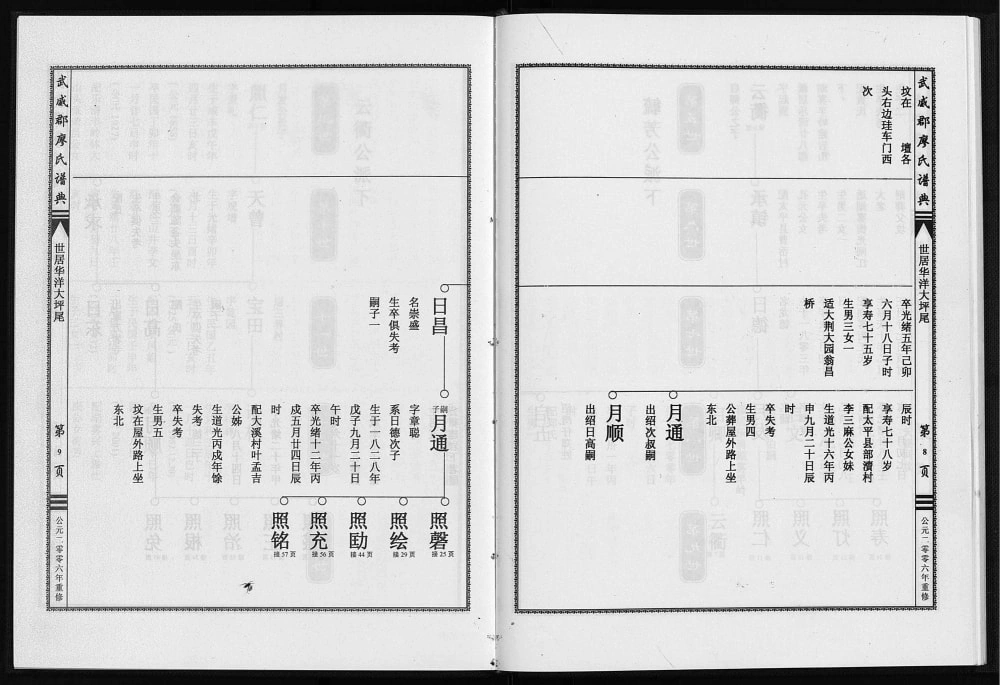 武威郡廖氏谱典
世居华洋大坪尾
第8页
公元二零零六年重修
坟在 壇各
头右边珪车门西
次
卒光绪五年己卯
六月十八日子时
享寿七十五岁
生男三女一
适大荆大园翁昌
桥
辰时
享寿七十八岁
配太平县部渍村
李三麻公女妹
生道光十六年丙
申九月二十日辰
时
卒失考
生男四
公葬屋外路上坐
东北
月通
出绍次叔嗣
月顺
出绍日高嗣
日昌
名崇盛
生卒俱失考
嗣子一
嗣子月通
字章聪
系日德次子
生于一八二八年
戊子九月二十日
午时
卒光绪十二年丙
戌五月十四日辰
时
配大溪村叶孟吉
公姊
生道光丙戌年馀
失考
卒失考
生男五
坟在屋外路上坐
东北
照磬
接25页
照绘
接29页
照劻
接44页
照充
接56页
照铭
接57页
武威郡廖氏谱典
世居华洋大坪尾
第9页
公元二零零六年重修